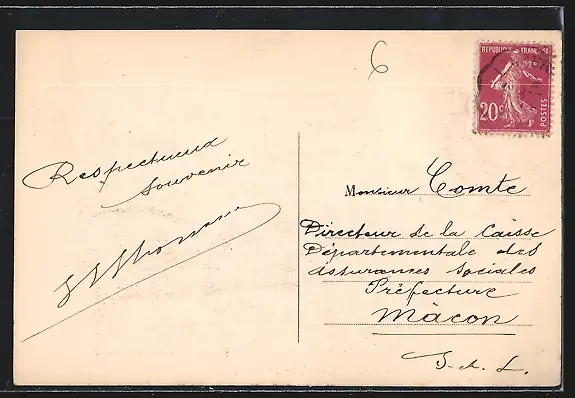 6
REPUBLIQUE FRANÇAISE
20c
POSTES
Respectueux
souvenir
Monsieur Comte
Directeur de la Caisse
Départementale des
assurances sociales
Préfecture
Mâcon
S.-et-L.